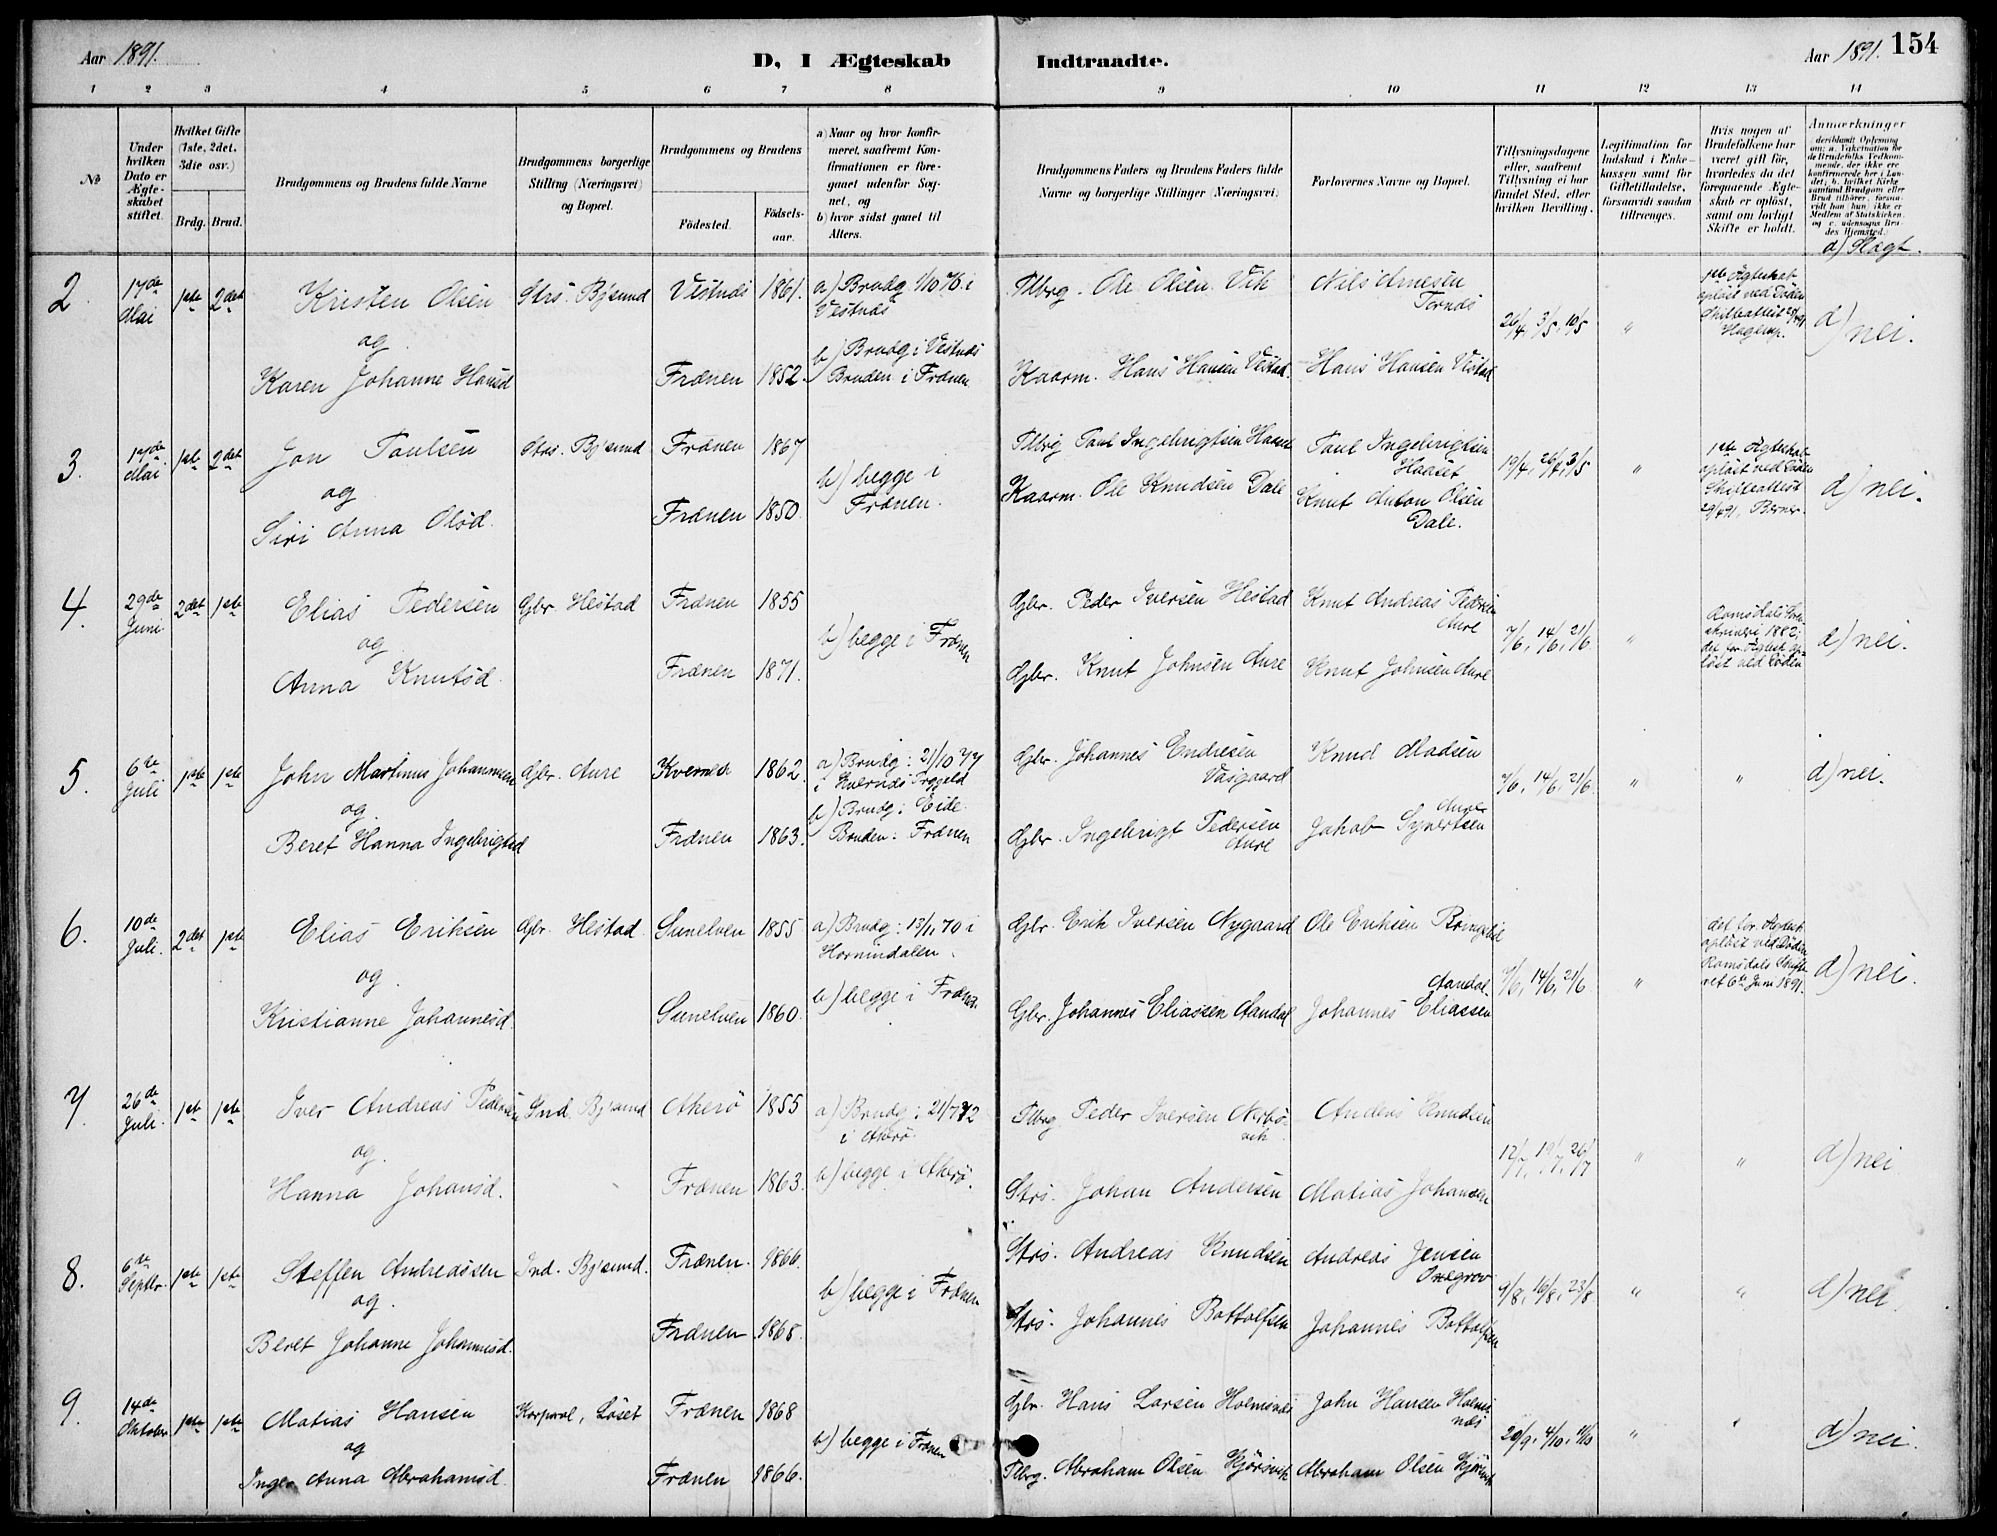 Aar 1891.
D, I Ægteskab
Indtraadte.
Aar 1891.
154
1 2 3 4 5 6 7 8 9 10 11 12 13 14
No
Under hvilken Dato er Ægteskabet stiftet.
Hvilket Gifte (1ste, 2det, 3die osv.)
Brdg. Brud.
Brudgommens og Brudens fulde Navne
Brudgommens borgerlige Stilling (Næringsvei) og Bopæl.
Brudgommens og Brudens
Fødested.
Fødsels-aar.
a) Naar og hvor konfirmeret, saafremt Konfirmationen er foregaaet udenfor Sognet, og
b) hvor sidst gaaet til Alters.
Brudgommens Faders og Brudens Faders fulde Navne og borgerlige Stillinger (Næringsvei)
Forlovernes Navne og Bopæl.
Tillysningsdagene eller, saafremt Tillysning ei har fundet Sted, efter hvilken Bevilling.
Legitimation for Indskud i Enkekassen samt for Giftetilladelse, forsaavidt saadan tiltrænges.
Hvis nogen af Brudefolkene har været gift før, hvorledes da det foregaaende Ægteskab er opløst, samt om lovligt Skifte er holdt.
Anmærkninger
d) Slægt.
2 17de Mai 1ste 2det Kristen Olsen Strs. Bysund Vestnæs 1861. a) Brudg. 1/10 76 i Vestnæs
Flbrg. Ole Olsen Vik Nils Arnesen Tornæs 26/4, 3/5, 10/5 " 1ste Ægteskab opløst ved Døden Skifteattest 25/4 91 Hagerup. d) nei.
og
Karen Johanne Hansd Frænen 1852. b) Brudg. i Vestnæs Bruden i Frænen
Kaarm. Hans Hansen Vestad. Hans Hansen Vestad
3. 17de Mai 1ste 2det Jon Paulsen Strs. Bysund Frænen 1867
Flbrg Paul Ingebrigtsen Haaset Paul Ingebrigtsen Haaset 19/4, 26/4, 3/5 " 1ste Ægteskab opløst ved Døden Skifteattest 29/4 91, Berner. d) nei.
og b) begge i Frænen.
Siri Anna Olsd. Frænen 1850.
Kaarm. Ole Knudsen Dale Knut Anton Olsen Dale.
4. 29de Juni 2det 1ste Elias Pedersen Gbr. Hestad Frænen 1855
Gbr. Peder Iversen Hestad Knut Andreas Pedersen Aure 7/6, 14/6, 21/6. " Romsdals 1882; ved Døden d) nei.
og b) begge i Frænen
Anna Knutsd. Frænen 1871.
Gbr. Knut Johnsen Aure Knut Johnsen Aure
5. 6te Juli 1ste 1ste John Martinus Johannesen Gbr. Aure Kvernes 1862. a) Brudg: 21/10 77 i Kvernes Prgjeld
Gbr. Johannes Endresen Vasgaard Knud Madsen Aure 7/6, 14/6, 21/6. " " d) nei.
og b) Brudg: Eide Bruden: Frænen
Beret Hanna Ingebrigtsd Frænen 1863.
Gbr. Ingebrigt Pedersen Aure Jakob Syvertsen
6. 10de Juli. 2det 1ste Elias Eriksen Gbr. Hestad Sunelven 1855 a) Brudg: 13/11 70 i Hornindalen.
Gbr. Erik Iversen Nygaard Ole Eriksen 7/6, 14/6, 21/6 " det for. Ægtesk. opløst ved Døden Romsdals 6te Juni 1891. d) nei.
og b) begge i Frænen
Kristianne Johannesd. Sunelven 1860.
Gbr. Johannes Eliassen Aandal Johannes Eliassen Aandal.
7. 26de Juli. 1ste 1ste Iver Andreas Pedersen Ind. Bysund Akerø 1855 a) Brudg: 21/7 72 i Akerø.
Flbrg Peder Iversen Anders Knudsen 12/7, 19/7, 26/7 " " d) nei
og
Hanna Johansd. Frænen 1863. b) begge i Akerø.
Strs. Johan Andersen Matias Johansen
8. 6te Septbr. 1ste 1ste Steffen Andreassen Ind. Bysund. Frænen. 1866.
Strs. Andreas Knudsen Andreas Jensen 9/8, 16/8, 23/8 " " d) nei.
og. b) begge i Frænen
Beret Johanne Johannesd. Frænen 1868.
Strs. Johannes Bottolfsen Johannes Bottolfsen
9. 14de Oktober 1ste 1ste Matias Hansen Korporal, Løset Frænen 1868
Gbr. Hans Larsen Holmsnæs John Hansen Holmsnæs 20/9, 4/10, 11/10 " " d) nei.
og b) begge i Frænen
Inger Anna Abrahamsd. Frænen 1866.
Flbrg. Abraham Olsen Hjørsvik Abraham Olsen Hjørsvik